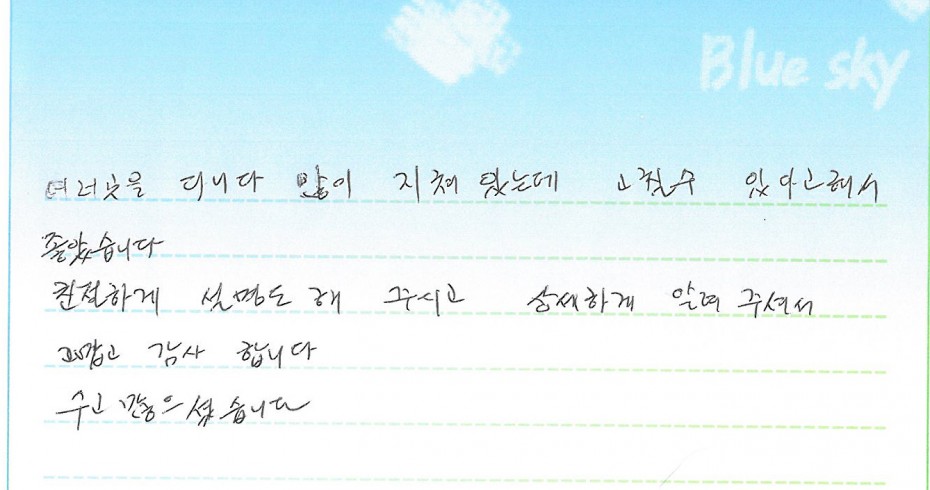 Blue sky
여러곳을 다니다 많이 지쳐 있는데 고칠수 있다고해서
좋았습니다
친절하게 설명도 해 주시고 상세하게 알려 주셔서
고맙고 감사 합니다
수고많으셨습니다